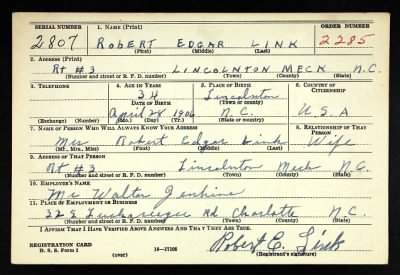 SERIAL NUMBER 1. NAME (Print) ORDER NUMBER
2807 ROBERT EDGAR LINK 2285
(First) (Middle) (Last)
2. ADDRESS (Print)
Rt #3 LINCOLNTON MECK N.C.
(Number and street or R. F. D. number) (Town) (County) (State)
3. TELEPHONE 4. AGE IN YEARS 5. PLACE OF BIRTH 6. COUNTRY OF CITIZENSHIP
34 Lincolnton
DATE OF BIRTH (Town or county)
April 28 1906 N.C. U.S.A
(Exchange) (No.) (Mo.) (Day) (Yr.) (State or country)
7. NAME OF PERSON WHO WILL ALWAYS KNOW YOUR ADDRESS 8. RELATIONSHIP OF THAT PERSON
Mrs Robert Edgar Link Wife
(Mr., Mrs., Miss) (First) (Middle) (Last)
9. ADDRESS OF THAT PERSON
Rt #3 Lincolnton Meck N.C.
(Number and street or R. F. D. number) (Town) (County) (State)
10. EMPLOYER'S NAME
Mr Walter Jenkins
11. PLACE OF EMPLOYMENT OR BUSINESS
Rd Charlotte N.C.
(Number and street or R. F. D. number) (Town) (County) (State)
I AFFIRM THAT I HAVE VERIFIED ABOVE ANSWERS AND THAT THEY ARE TRUE.
REGISTRATION CARD
D. S. S. Form 1 (over) 16—17105
Robert E. Link
(Registrant's signature)